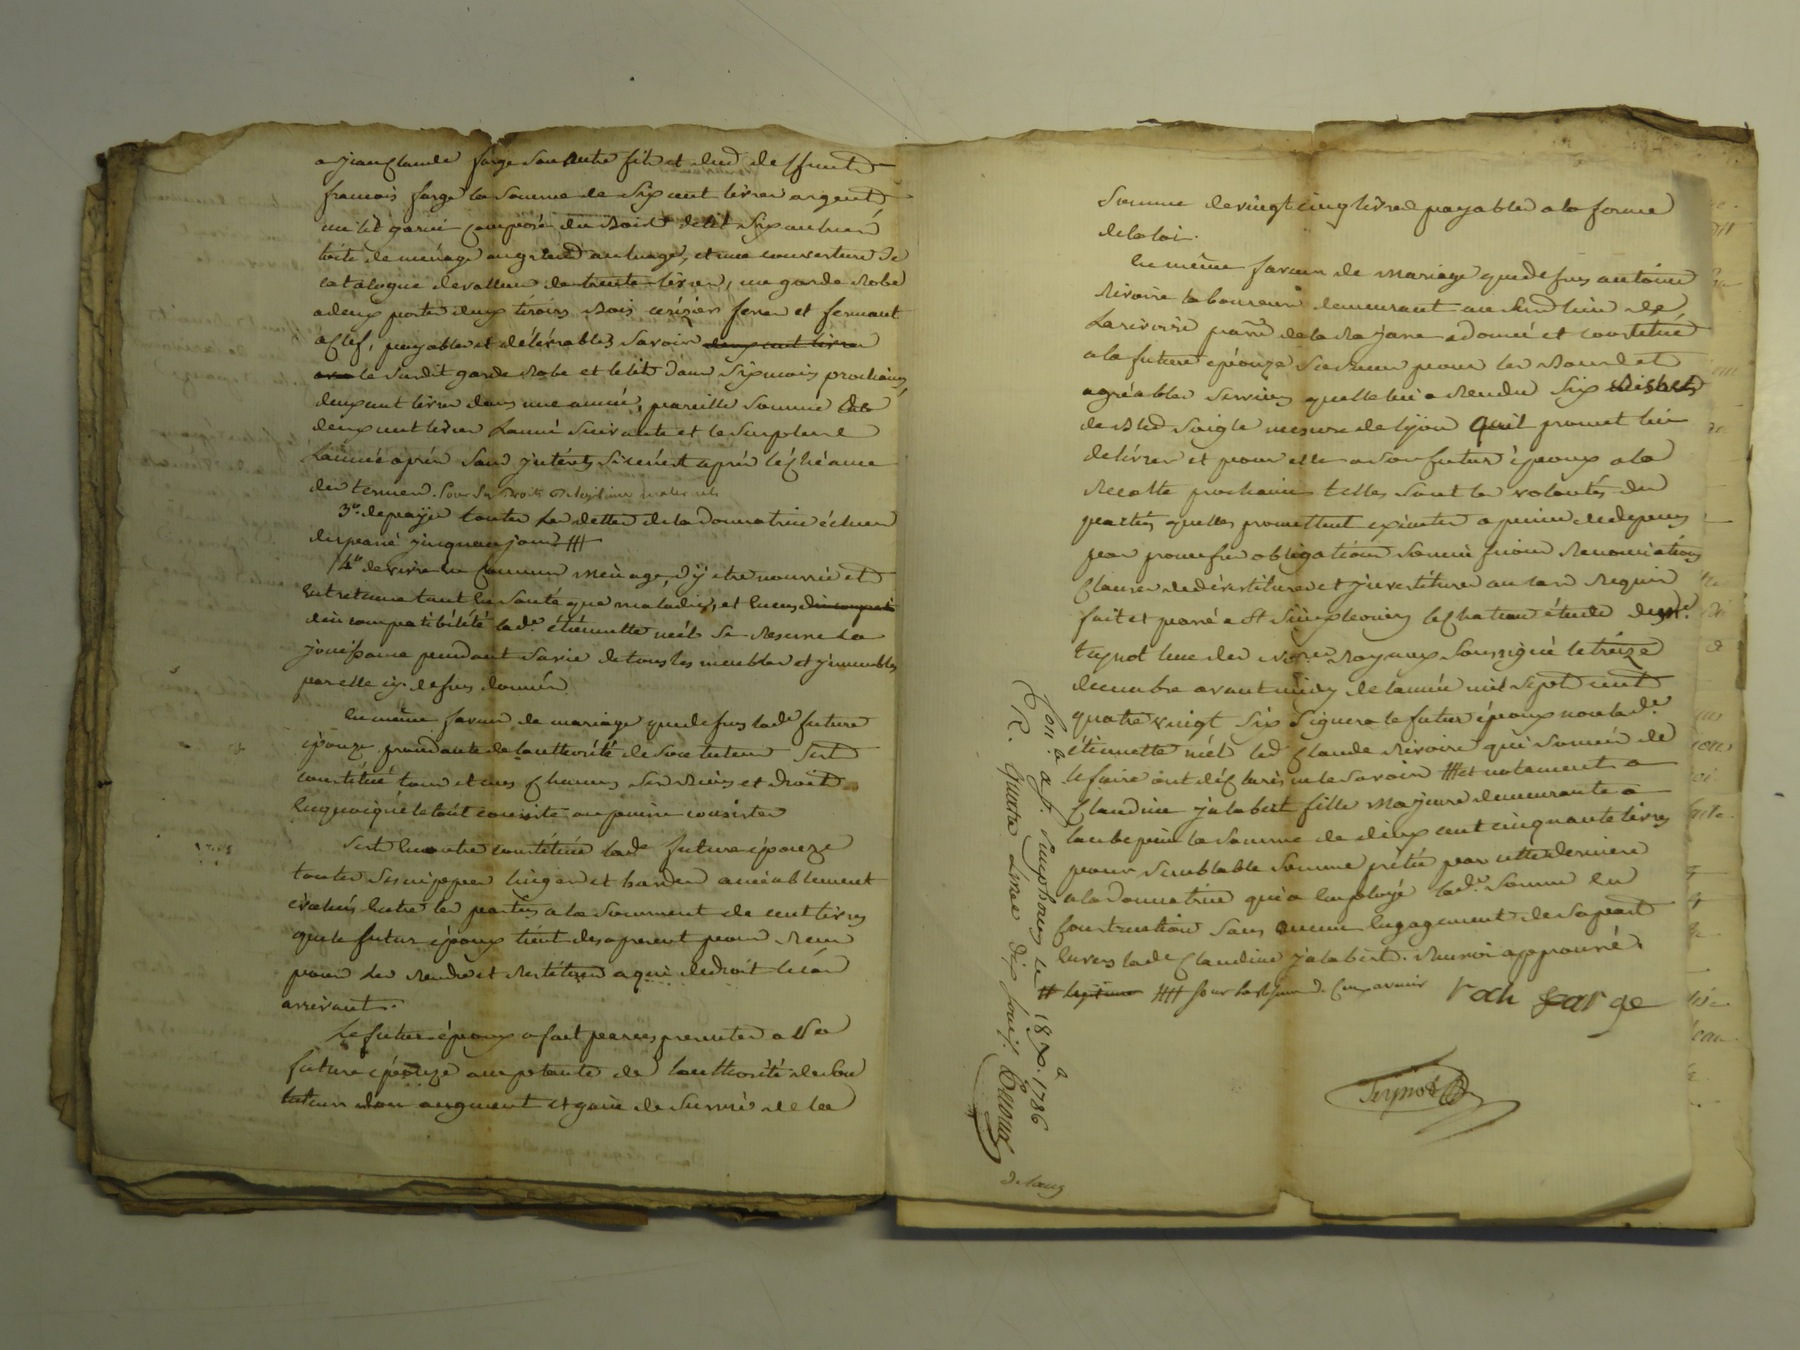 a jean Claude farge son autre fils et dud deffunt
francois farge la somme de Six cent livres argent
un lit garni composé du bois de lit Six aunes
toile de ménage en grand au linage, et une couverture de
catalogne de valleur de trente livres, une garde Robe
a deux portes deux tiroirs Bois cérizier ferré et fermant
à Clef, payables et délivrables Savoir deux cent livres
le Susdit garde Robe et le lit dans Six mois prochains,
deux cent livres dans une année, pareille Somme de
deux cent livres L'année Suivante et le Surplus
L'année après Sans jntérêts Si ce n'est après l'échéance
des termes. pour Ses droits de légitime maternels
3°. de payer toutes Les dettes de la donnatrice échues
du passé jusqu'au jour #
4° de vivre en Commun ménage, d'y etre nourrie et
Entretenue tant En Santé que maladies, et En cas d'incompati
d'incompatibilité lade. étiennette niel Se Reserve La
jouissance pendant Sa vie de tous les meubles et jmmeubles
par elle cy-dessus donnés
En même faveur de mariage que dessus lade future
épouze procédante de l'authorité de Son tuteur S'est
constitué tous et uns Chacuns Ses Biens et Droits
En quoi que le tout consiste ou puisse consister
S'est En outre constitué lade. future épouze
toutes Ses nippes linges et hardes amiablement
évalués Entre les parties a la Somme de cent livres
que le futur époux tient des a present pour Reçu
pour Les Rendre et Restituer a qui de droit le cas
arrivant.
Le futur époux a fait par ces presentes a la
future épouze acceptante de l'authorité de son
tuteur don augment et gain de Survie de la
Somme de vingt cinq livres payable a la forme
de la loi.
En même faveur de Mariage que dessus antoine
Rivoire laboureur demeurant au Susd lieu de
La rivoire parr. de la Rajasse a donné et constitué
a la future épouze Sa Sœur pour les Bons et
agréables Services qu'elle lui a Rendu Six Bichets
de Bled Seigle mesure de lyon qu'il promet lui
délivrer et pour elle a Son futur époux a la
Recolte prochaine telles Sont les volontés des
parties qu'elles promettent exécuter a peine de depens
par promesses obligations Soumissions Renonciations
Clauses de dévestiture et jnvestiture au cas Requis
fait et passé a St Simphorien le Chateau étude de Me.
teynot l'un des Nores. Royaux Soussigné le treize
décembre avant midy de l'année mil Sept cent
quatre vingt Six Signera le futur époux non lade.
étiennette niel led Claude Rivoire qui Sommés de
le faire ont déclarés ne le Savoir # et notament a
Claudine jalabert fille Majeure demeurante a
l'aubepin la Somme de deux cent cinquante livres
pour Semblable Somme prêtée par cette dernière
a la donnatrice qui a Employé lade. Somme En
Construction Sans aucun Engagement de Sa part
Envers lade Claudine jalabert. Renvoi approuvé.
# legitime
roch farge
Teynot
Con. a St. Simphorien le 18 Xbre. 1786
R. quatre Livres dix Sous.